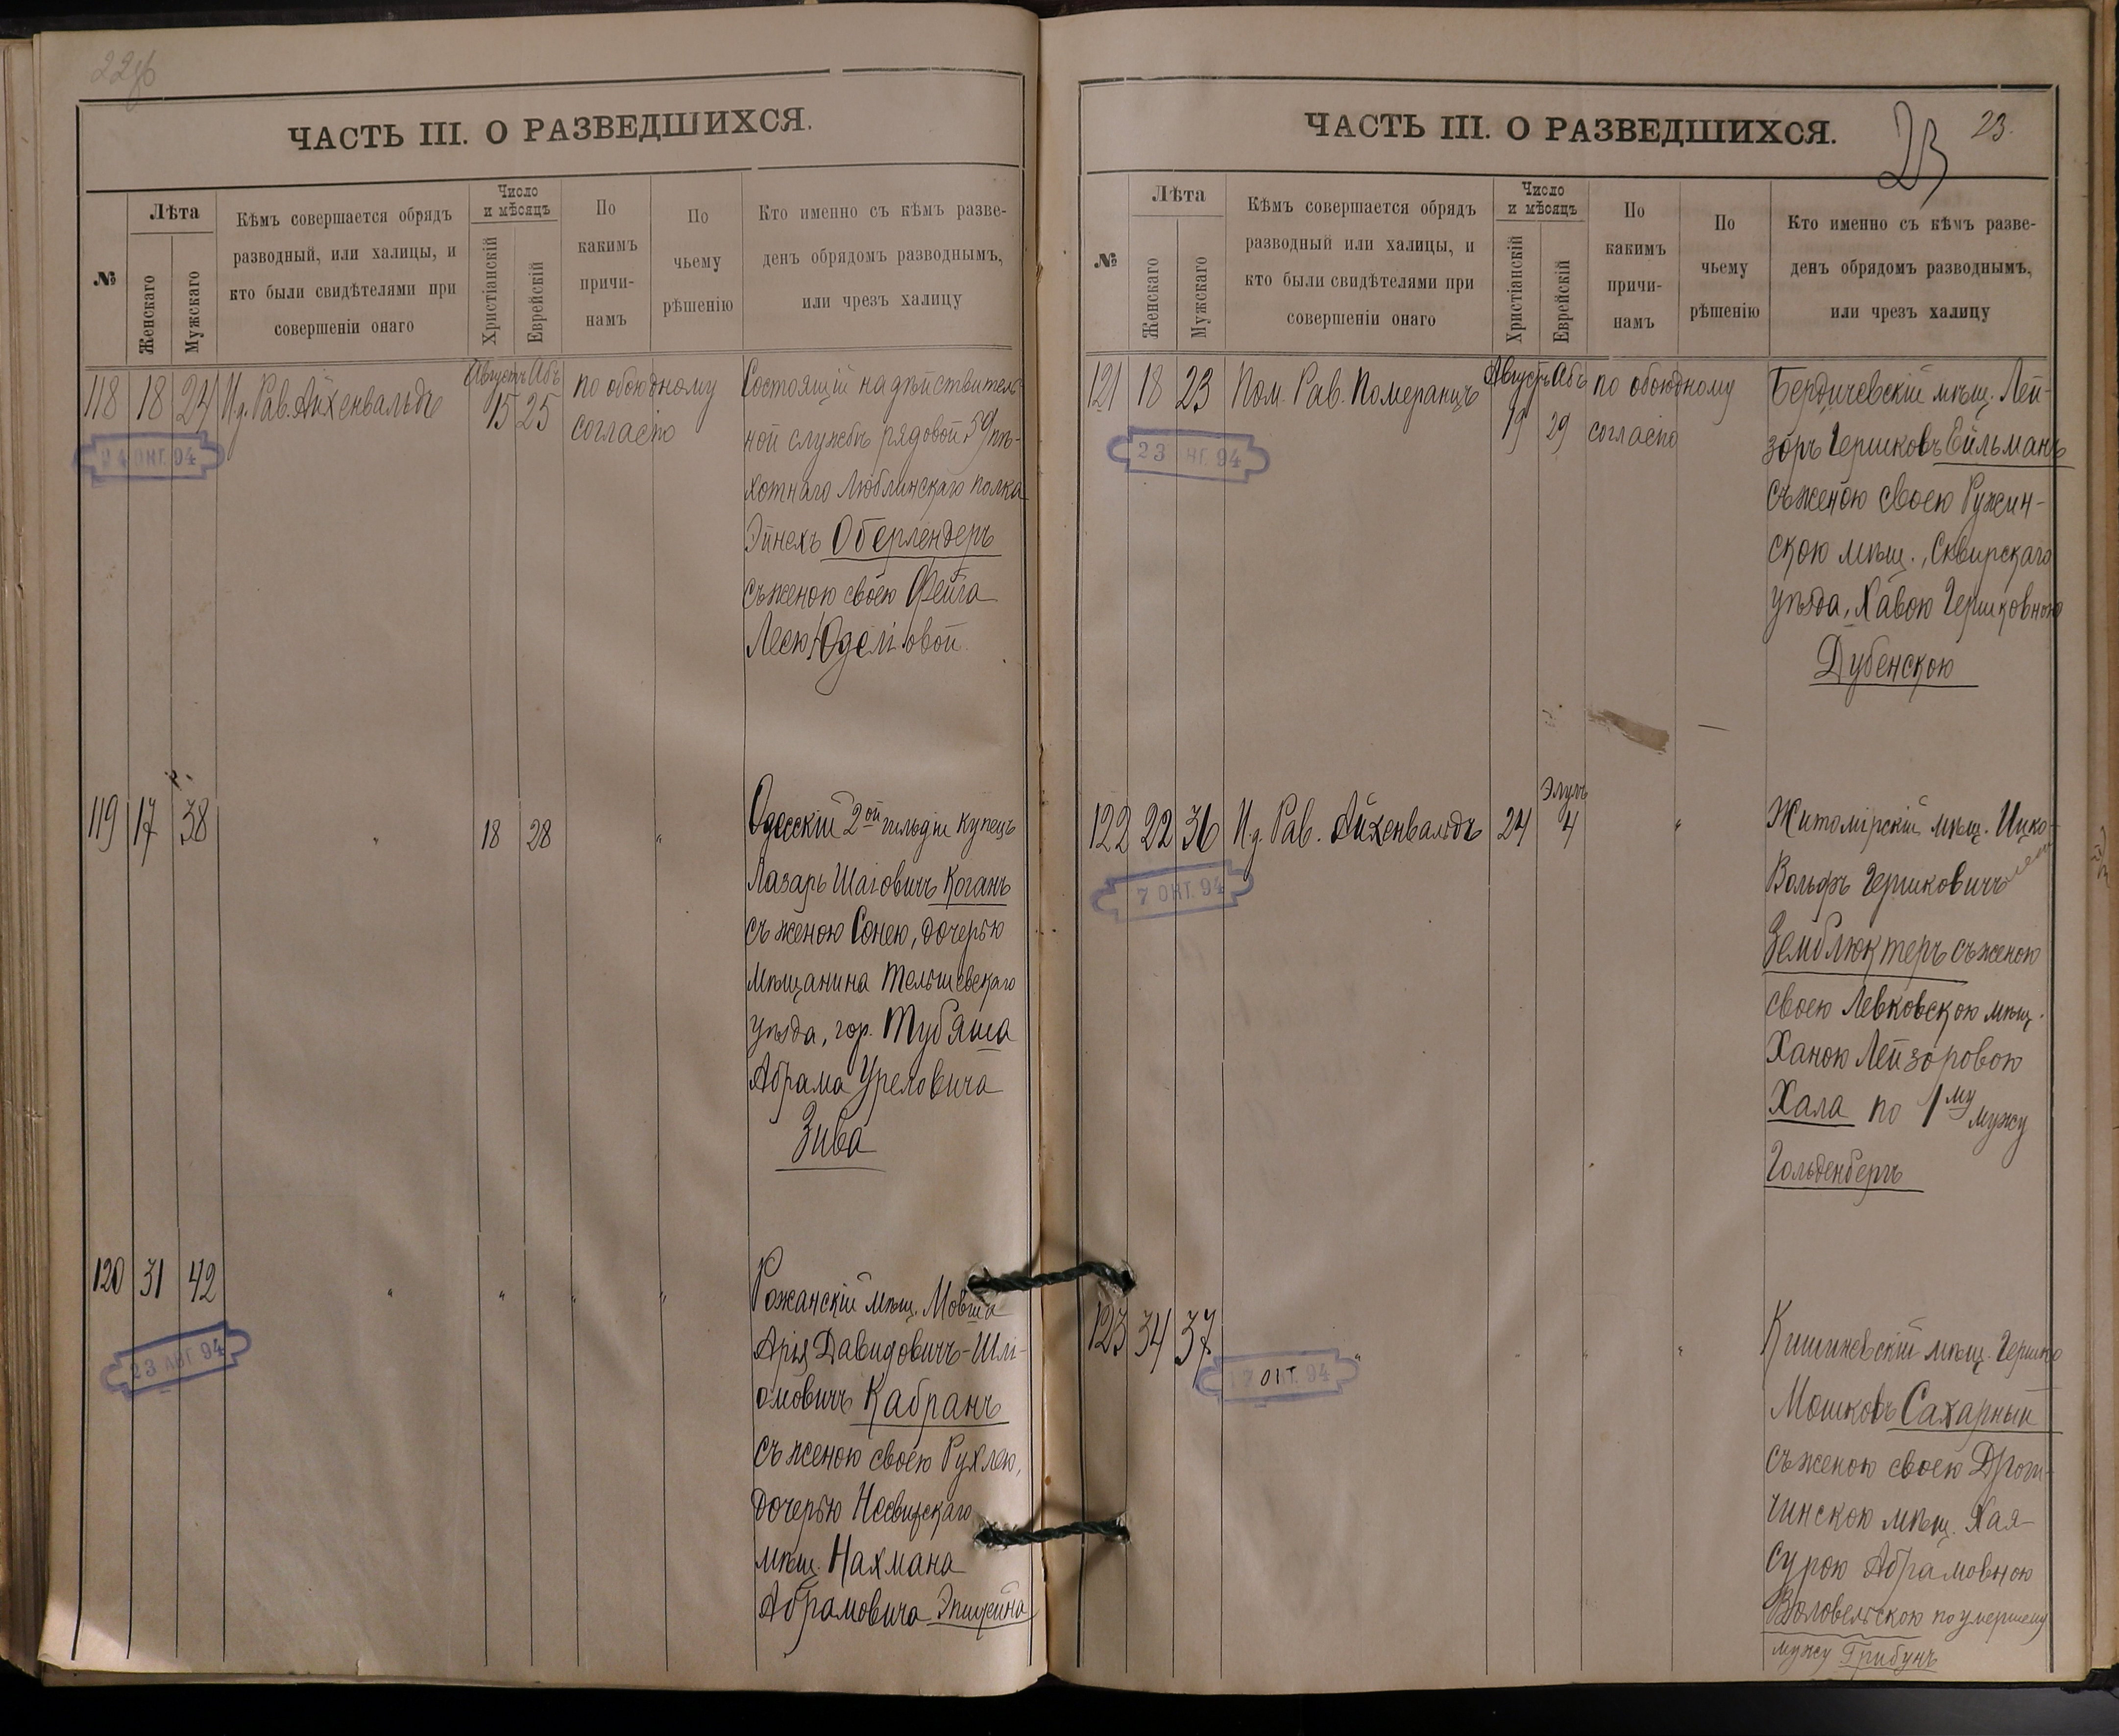 ЧАСТЬ III. О РАЗВЕДШИХСЯ.
№
Лѣта
Женскаго
Мужскаго
Кѣмъ совершается обрядъ
разводный, или халицы, и
кто были свидѣтелями при
совершеніи онаго
Число
и мѣсяцъ
Христіанскій
Еврейскій
По
какимъ
причи-
намъ
По
чьему
рѣшенію
Кто именно съ кѣмъ разве-
денъ обрядомъ разводнымъ,
или чрезъ халицу
118 18 24 И.д. Рав. Айхенвальдъ
Августъ Абъ
15 25
по обоюдному
согласію
Состоящій на дѣйствитель-
ной службѣ рядовой 59 пѣ-
хотнаго Люблинскаго полка
Эйнехъ Оберлендеръ
съ женою своею Фейга
Лею
24 ОКТ. 94
119 17 38 " 18 28 "
Одесскій 2ой гильдіи купецъ
Лазарь Шаговичъ Коганъ
съ женою Сонею, дочерью
мѣщанина Тельшевскаго
уѣзда, гор. Тубяша
Абрама Уреловича
Зива
120 31 42 " " " "
Рожанскій мѣщ. Мовша
Арія Давидовичъ-Шлі-
омовичъ Кабранъ
съ женою своею Рухлею,
дочерью Несвижскаго
мѣщ. Нахмана
Абрамовича Эпштейна
23 АВГ 94
ЧАСТЬ III. О РАЗВЕДШИХСЯ.
23 23.
№
Лѣта
Женскаго
Мужскаго
Кѣмъ совершается обрядъ
разводный или халицы, и
кто были свидѣтелями при
совершеніи онаго
Число
и мѣсяцъ
Христіанскій
Еврейскій
По
какимъ
причи-
намъ
По
чьему
рѣшенію
Кто именно съ кѣмъ разве-
денъ обрядомъ разводнымъ,
или чрезъ халицу
121 18 23 Пом. Рав. Померанцъ
Августъ Абъ
19 29
по обоюдному
согласію
Бердичевскій мѣщ. Лей-
зоръ Гершковъ Ейльманъ
съ женою своею Ружин-
скою мѣщ., Сквирскаго
уѣзда, Хавою Гершковною
Дубенскою
23 94
122 22 36 И.д. Рав. Айхенвальдъ 24
Элулъ
4 "
Житомірскій мѣщ. Ицко-
Вольфъ Гершковичъ
Землюктеръ съ женою
своею Левковскою мѣщ.
Ханою Лейзоровою
Хала по 1му мужу
Гольденбергъ
7 ОКТ. 94
123 34 37 " " " "
Кишиневскій мѣщ. Гершко
Мошковъ Сахарный
съ женою своею Дроги-
чинскою мѣщ. Хая-
Сурою Абрамовною
Воловельскою по умершему
мужу Грибунъ
7 ОКТ. 94